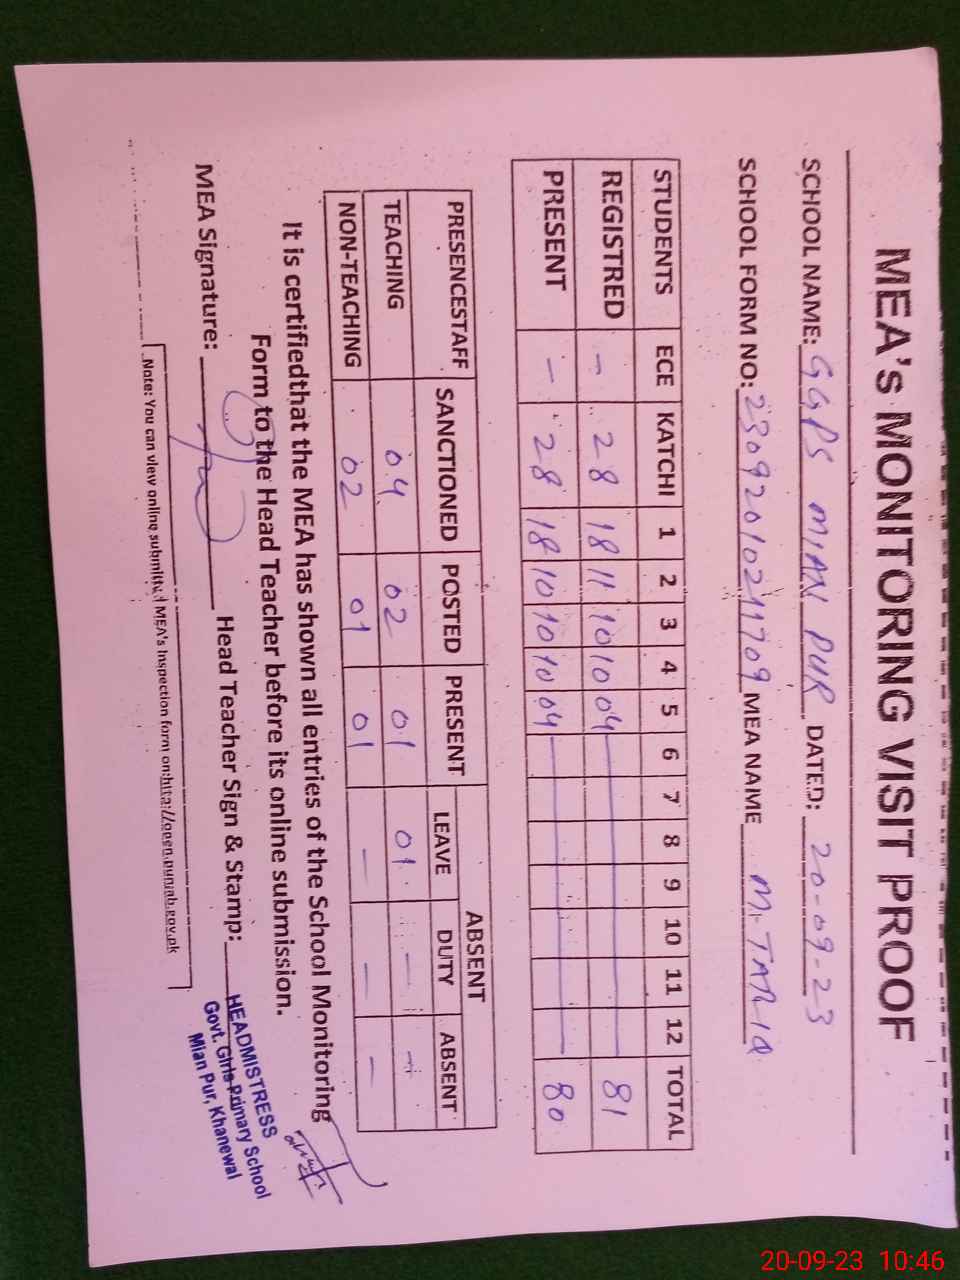 MEA's MONITORING VISIT PROOF
SCHOOL NAME: GGPS MIAN PUR DATED: 20-09-23
SCHOOL FORM NO: 23092010211709 MEA NAME M-TARIQ
STUDENTS ECE KATCHI 1 2 3 4 5 6 7 8 9 10 11 12 TOTAL
REGISTRED - 28 18 11 10 10 04 81
PRESENT - 28 18 10 10 10 04 80
PRESENCESTAFF SANCTIONED POSTED PRESENT ABSENT
LEAVE DUTY ABSENT
TEACHING 04 02 01 01 - -
NON-TEACHING 02 01 01 - - -
It is certifiedthat the MEA has shown all entries of the School Monitoring
Form to the Head Teacher before its online submission.
MEA Signature: Head Teacher Sign & Stamp:
HEADMISTRESS
Govt. Girls Primary School
Mian Pur, Khanewal
Note: You can view online submitted MEA's Inspection form on:http://open.punjab.gov.pk
20-09-23 10:46